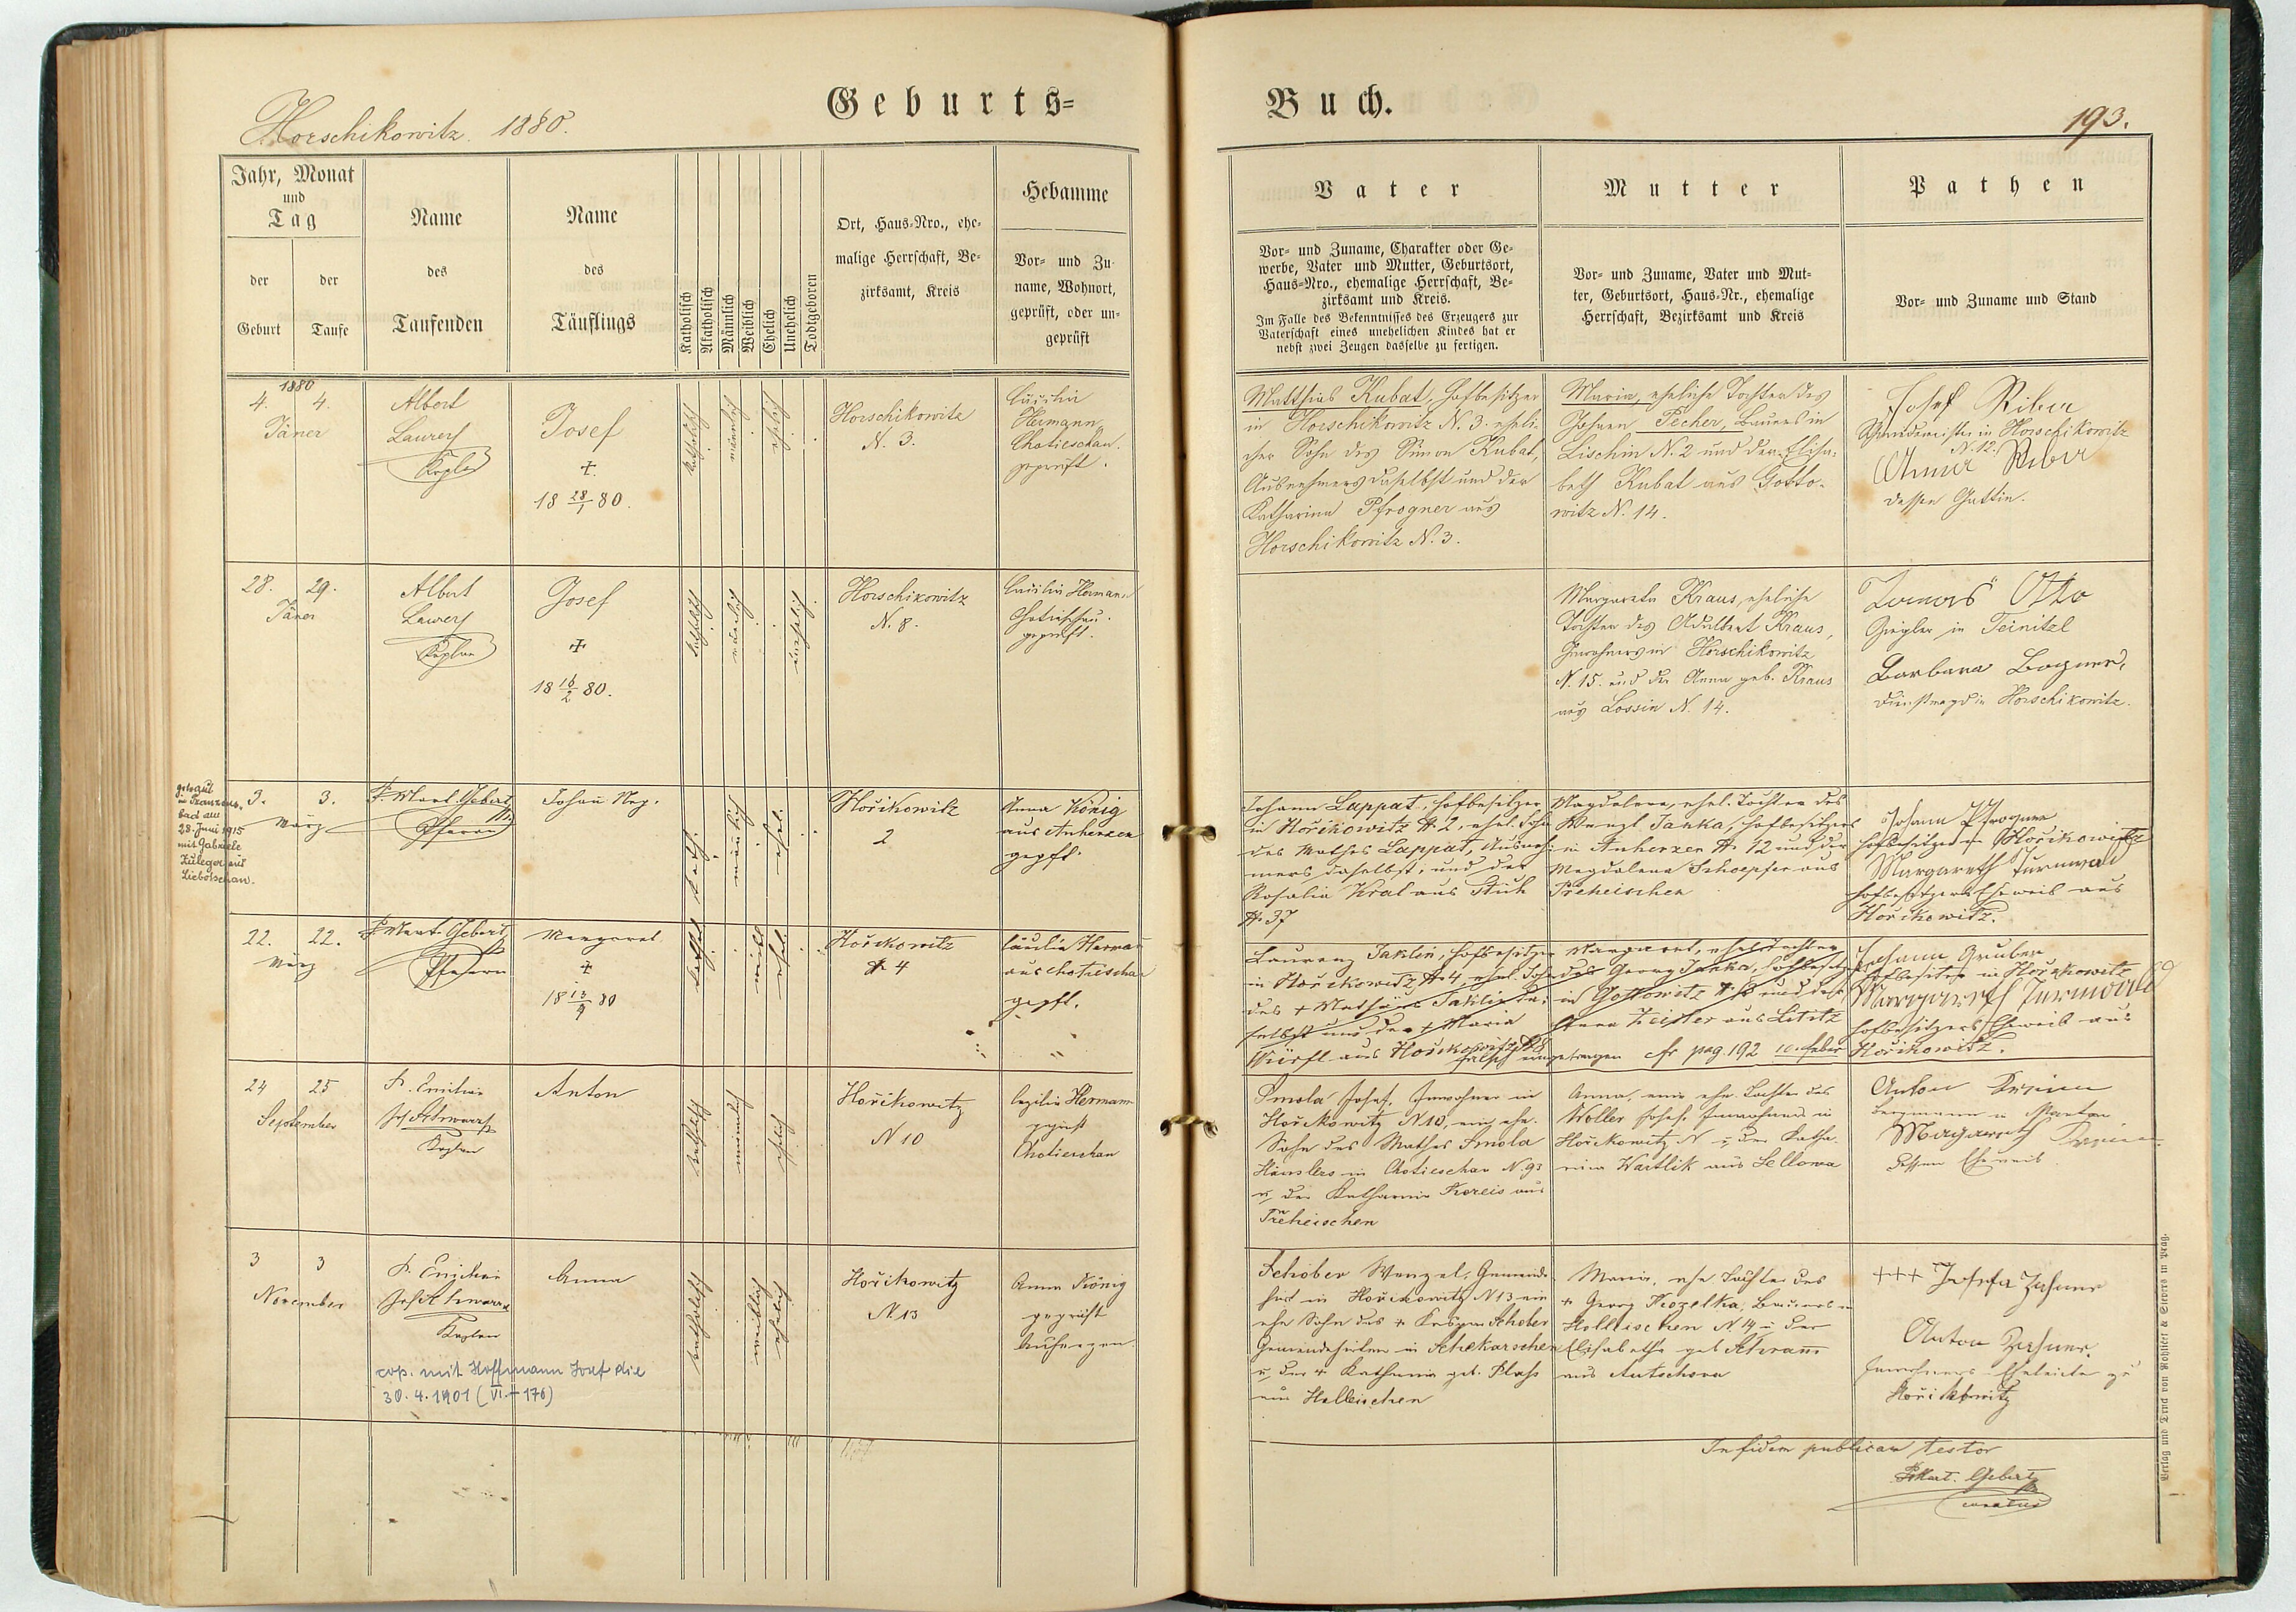 Geburts=
Buch.
Horschikowitz. 1880.
193.
Jahr, Monat
und
Tag
der
Geburt
der
Taufe
Name
des
Taufenden
Name
des
Täuflings
Katholisch
Akatholisch
Männlich
Weiblich
Ehelich
Unehelich
Todtgeboren
Ort, Haus-Nro., ehe-
malige Herrschaft, Be-
zirksamt, Kreis
Hebamme
Vor- und Zu-
name, Wohnort,
geprüft, oder un-
geprüft
Vater
Vor- und Zuname, Charakter oder Ge-
werbe, Vater und Mutter, Geburtsort,
Haus-Nro., ehemalige Herrschaft, Be-
zirksamt und Kreis.
Im Falle des Bekenntnisses des Erzeugers zur
Vaterschaft eines unehelichen Kindes hat er
nebst zwei Zeugen dasselbe zu fertigen.
Mutter
Vor- und Zuname, Vater und Mut-
ter, Geburtsort, Haus-Nr., ehemalige
Herrschaft, Bezirksamt und Kreis
Pathen
Vor- und Zuname und Stand
1880
4. 4.
Jäner
Albert
Kaplan
Josef
+
18 28/1 80.
katholisch
männlich
ehelich
Horschikowitz
N. 3.
Hermann,
Chotieschau.
geprüft.
Matthias Kubat, Hofbesitzer
in Horschikowitz N. 3. eheli-
cher Sohn des Simon Kubat,
Ausnehmers daselbst und der
Katharina Pfrogner aus
Horschikowitz N. 3.
Maria, eheliche Tochter des
Johann Pecher, Bauers in
Lischin N. 2 und der Elisa-
beth Kubat aus Gotto-
witz N. 14.
Josef
in Horschikowitz
N. 12.
Anna
dessen Gattin.
28. 29.
Jäner
Albert
Kaplan
Josef
+
18 16/2 80.
katholisch
männlich
unehelich
Horschikowitz
N. 8.
Cäcilia Hermann
Chotieschau.
geprüft.
Margareta Kraus, eheliche
Tochter des Adalbert Kraus,
Inwohners in Horschikowitz
N. 15. und der Anna geb. Kraus
aus Lossin N. 14.
Otto
Ziegler in Teinitzl
Barbara
Dienstmagd in Horschikowitz.
getraut
in Franzens-
bad am
28. Juni 1915
mit Gabriele
Zuleger aus
Liebotschan.
3. 3.
März
P. Mart. Gebert
Pfarrer
Johann Nep.
kath.
männlich
ehel.
Hořikowitz
2
Anna König
aus Anherzen
gepft.
Johann Lappat, Hofbesitzer
in Hořikowitz N. 2, ehel. Sohn
des Mathes Lappat, Ausneh-
mers daselbst, und der
Rosalia Kral aus Stich
N. 37
Magdalena, ehel. Tochter des
Wenzl Janka, Hofbesitzers
in Anherzen N. 12 und der
Magdalena Schoepfer aus
Preheischen
Johann Pfrogner
Hofbesitzer in Hořikowitz
Margareth Turnwald
Hofbesitzers Eheweib aus
Hořikowitz.
22. 22.
März
P. Mart. Gebert
Pfarrer
Margaret
+
18 13/9 80
weibl.
ehel.
Hořikowitz
N 4
Cäcilia Herman
aus Chotieschau
gepft.
Laurenz Jaklin, Hofbesitzer
in Hořikowitz N. 4, ehel. Sohn
des + Mathias Jaklin da-
selbst und der + Maria
Würfl aus Hořikowitz N. 8
Margaret, ehel. Tochter
des Georg Janka, Hofbesitzers
in Gottowitz N. 8 und der
Anna Zeidler aus Lititz
falsch eingetragen pag. 192
Johann Gruber
Hofbesitzer in Hořikowitz
Margareth Turnwald
Hofbesitzers Eheweib aus
Hořikowitz.
24 25
September
P. Emilian
Kaplan
Anton
katholisch
männlich
ehelich
Hořikowitz
N 10
Cezilia Hermann
geprüft
Chotieschau
Smola Josef, Inwohner in
Hořikowitz N 10, ein ehe.
Sohn des Mathes Smola
Häuslers in Chotieschau N. 93
u. der Katharina Kreis aus
Třeheischen
Anna, eine ehe. Tochter des
Woller Josef, Inwohner in
Hořikowitz N u. der Katha-
rina Wartlik aus Sellowa
Anton
Bergmann in Mantau
Magareth
dessen Eheweib
3 3
November
P. Emilian
Kaplan
Anna
katholisch
weiblich
ehelich
Hořikowitz
N 13
Anna König
geprüft
Anherzen
cop. mit Hoffmann Josef die
30. 4. 1901 (VI. + 176)
Schober Wenzel, Gemeinde-
hirt in Hořikowitz N 13 ein
ehe Sohn des + Kaspar Schober
Gemeindehirten in Schekarschen
u. der + Katharina geb. Plass
aus Holleischen
Maria, ehe Tochter des
+ Georg Kozelka, Bauers in
Holleischen N. 14 u. der
Elisabetha geb. Schramm
aus Autschowa
+++ Josefa
Anton
Inwohners Eheleute zu
Hořikowitz
In fidem publicam testor
P. Mart. Gebert
curatus
Verlag und Druck von Kohliček & Sievers in Prag.